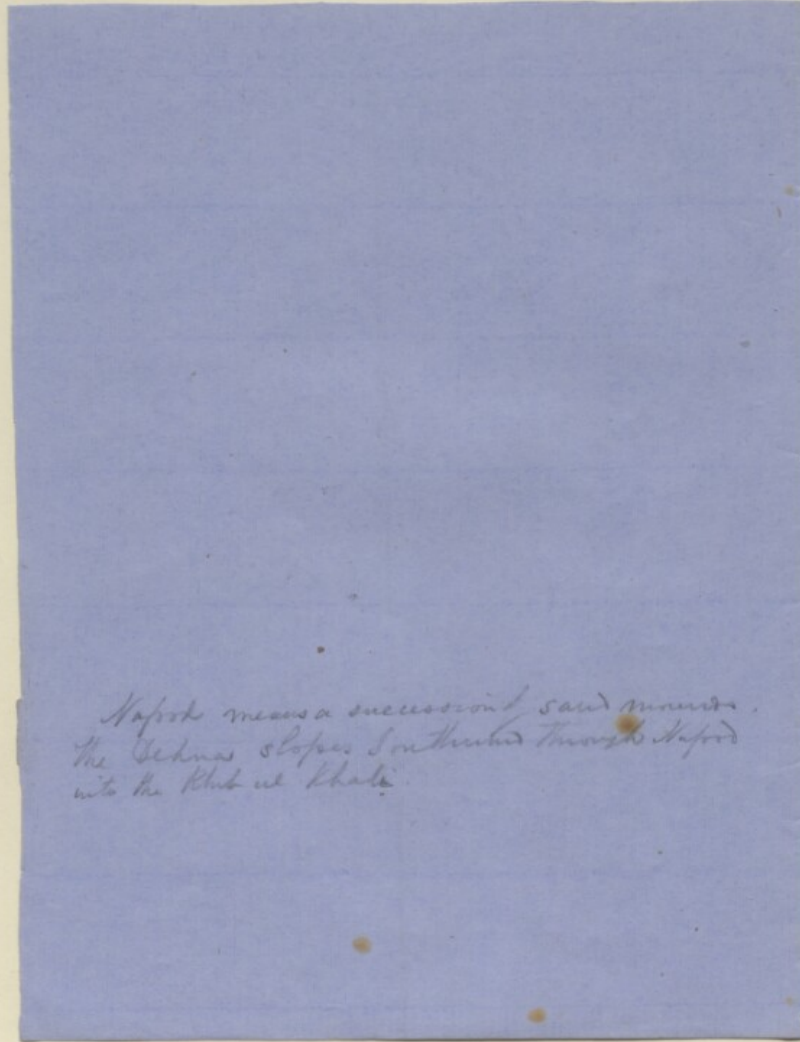 Nafood means a succession of sand mounds.
The Dehna slopes Southward through Nafood
into the Rhub ul Khali